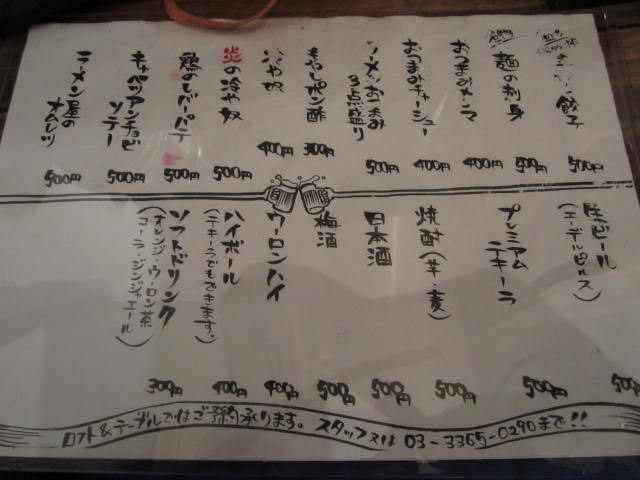 餃子 500円
麺の刺身 500円
おつまみメンマ 400円
おつまみチャーシュー 400円
3点盛り 500円
ポン酢 300円
冷や奴 400円
炎の冷や奴 500円
鶏のレバーパテ 500円
キャベツアンチョビソテー 500円
ラーメン屋のオムレツ 500円
生ビール
(エーデルピルス)
500円
プレミアムテキーラ 500円
焼酎(芋・麦) 500円
日本酒 500円
梅酒 500円
ウーロンハイ 400円
ハイボール
(テキーラでもできます。)
400円
ソフトドリンク
(オレンジ・ウーロン茶
コーラ・ジンジャーエール)
300円
ロフト&テーブルではご予約承ります。 スタッフ又は 03-3365-0290まで!!